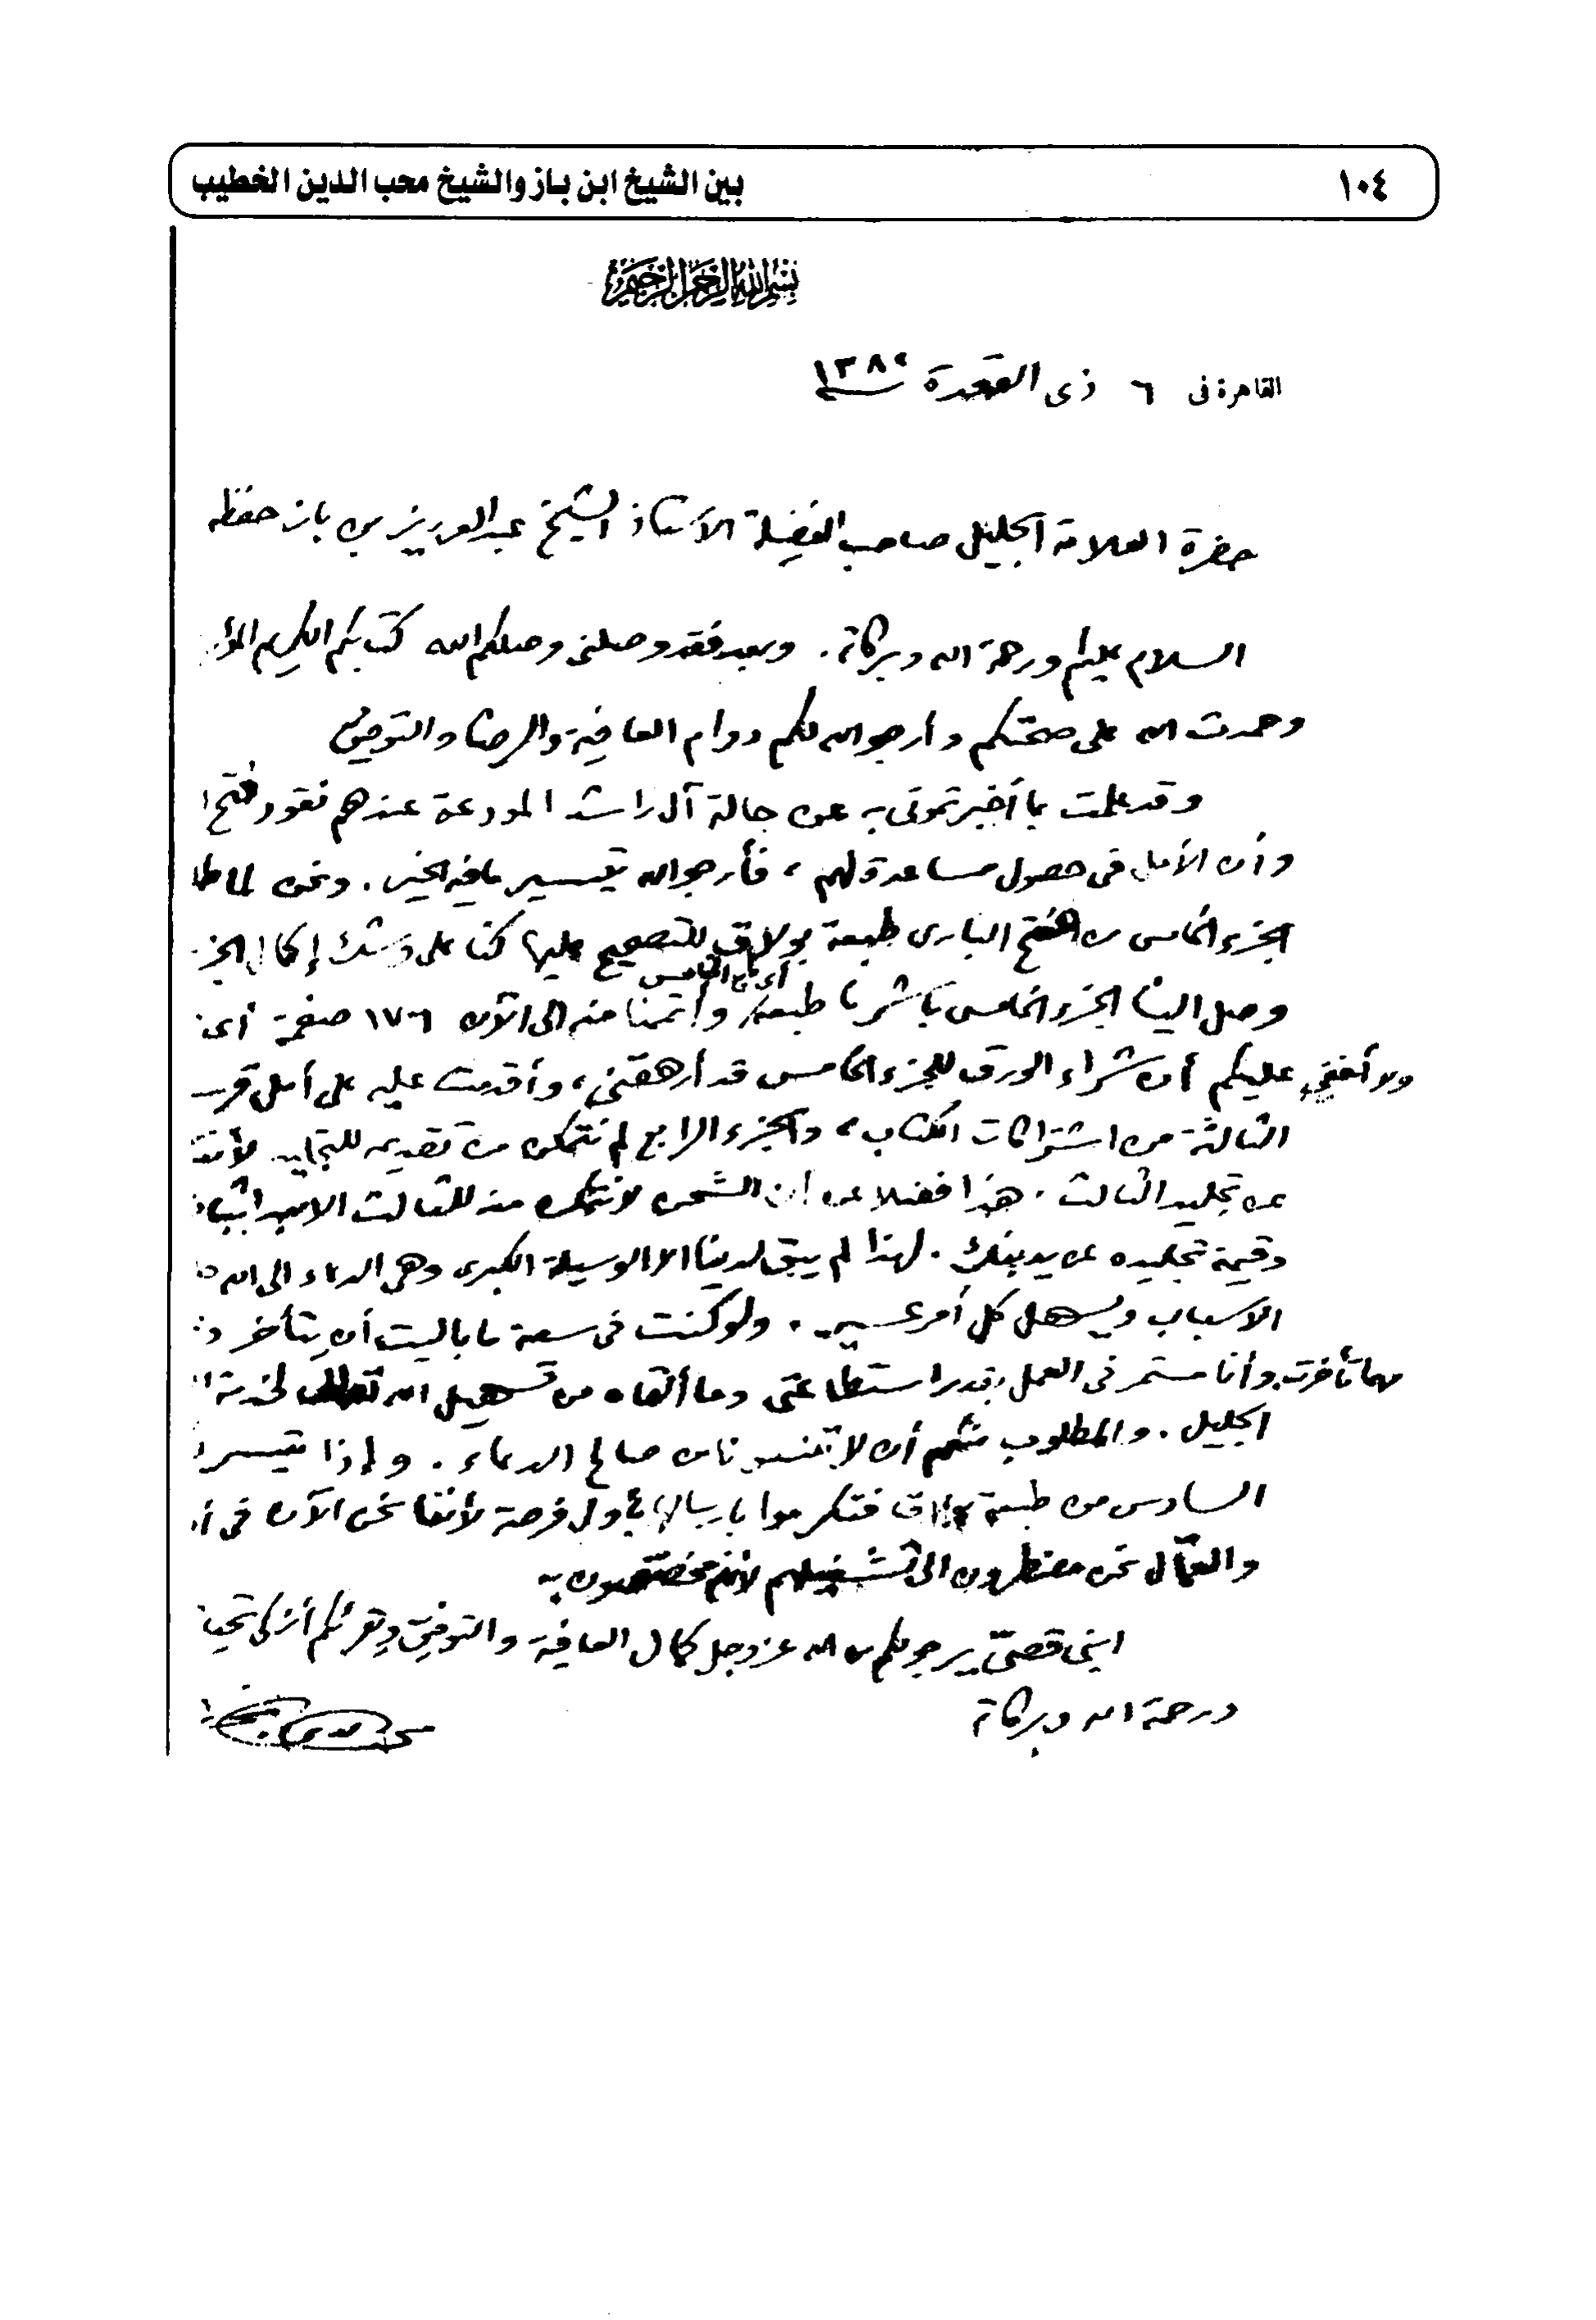 ١٠٤ بين الشيخ ابن باز والشيخ محب الدين الخطيب
بسم الله الرحمن الرحيم
القاهرة في ٦ ذى القعدة سنة ١٣٨٠
حضرة العلامة الجليل صاحب الفضيلة الأستاذ الشيخ عبد العزيز بن باز حفظه
السلام عليكم ورحمة الله وبركاته. وبعد فقد وصلني وصلكم الله كتابكم الكريم المؤر
وحمدت الله على صحتكم وأرجو الله لكم دوام العافية والرضا والتوفيق
وقد علمت بما أخبرتموني به عن حالة آل راشد المودعة عندهم نقود فتح ا
وأن الأمل في حصول مساعدة لهم، فأرجو الله تيسير ما فيه الخير. ونحن لما طا
الجزء الخامس من الفتح الباري طبعة بولاق للتصحيح عليها كنا على وشك إكمال الجز
وصل الينا الجزء الخامس باشرنا طبعه أي الخامس وأتممنا منه الى الآن ١٧٦ صفحة أى
ولا أخفي عليكم أن شراء الورق للجزء الخامس قد أرهقني، وأقدمت عليه على أمل قرب
الثالثة من اشتراكات الكتاب، والجزء الرابع لم نتمكن من تقديمه للتجليد لأننا
عن تجليد الثالث. هذا فضلا عن أن الشحن لا نتمكن منه للثالث الا بعد اثبات
وقيمة تجليده عن يد بنك. لهذا لم يبق لدينا الا الوسيلة الكبرى وهي الدعاء الى الله
الأسباب ويسهل كل أمر عسير. ولو كنت في سعة ما باليت أن يتأخر
مهما تأخرت. وأنا مستمر في العمل بقدر استطاعتى وما ألقاه من تسهيل الله تعالى لخدمة ا
الجليل. والمطلوب منكم أن لا تنسونا من صالح الدعاء. وإذا تيسر ا
السادس من طبعة بولاق فتكرموا بارسالها بأول فرصة لأننا نحن الآن في أ
والعمال نحن مضطرون الى تشغيلهم لأنهم مختصون به
ابني قصيّ يرجو لكم من الله عز وجل كمال العافية والتوفيق ويقرئكم أزكى تحيا
ورحمة الله وبركاته
محب الدين الخطيب